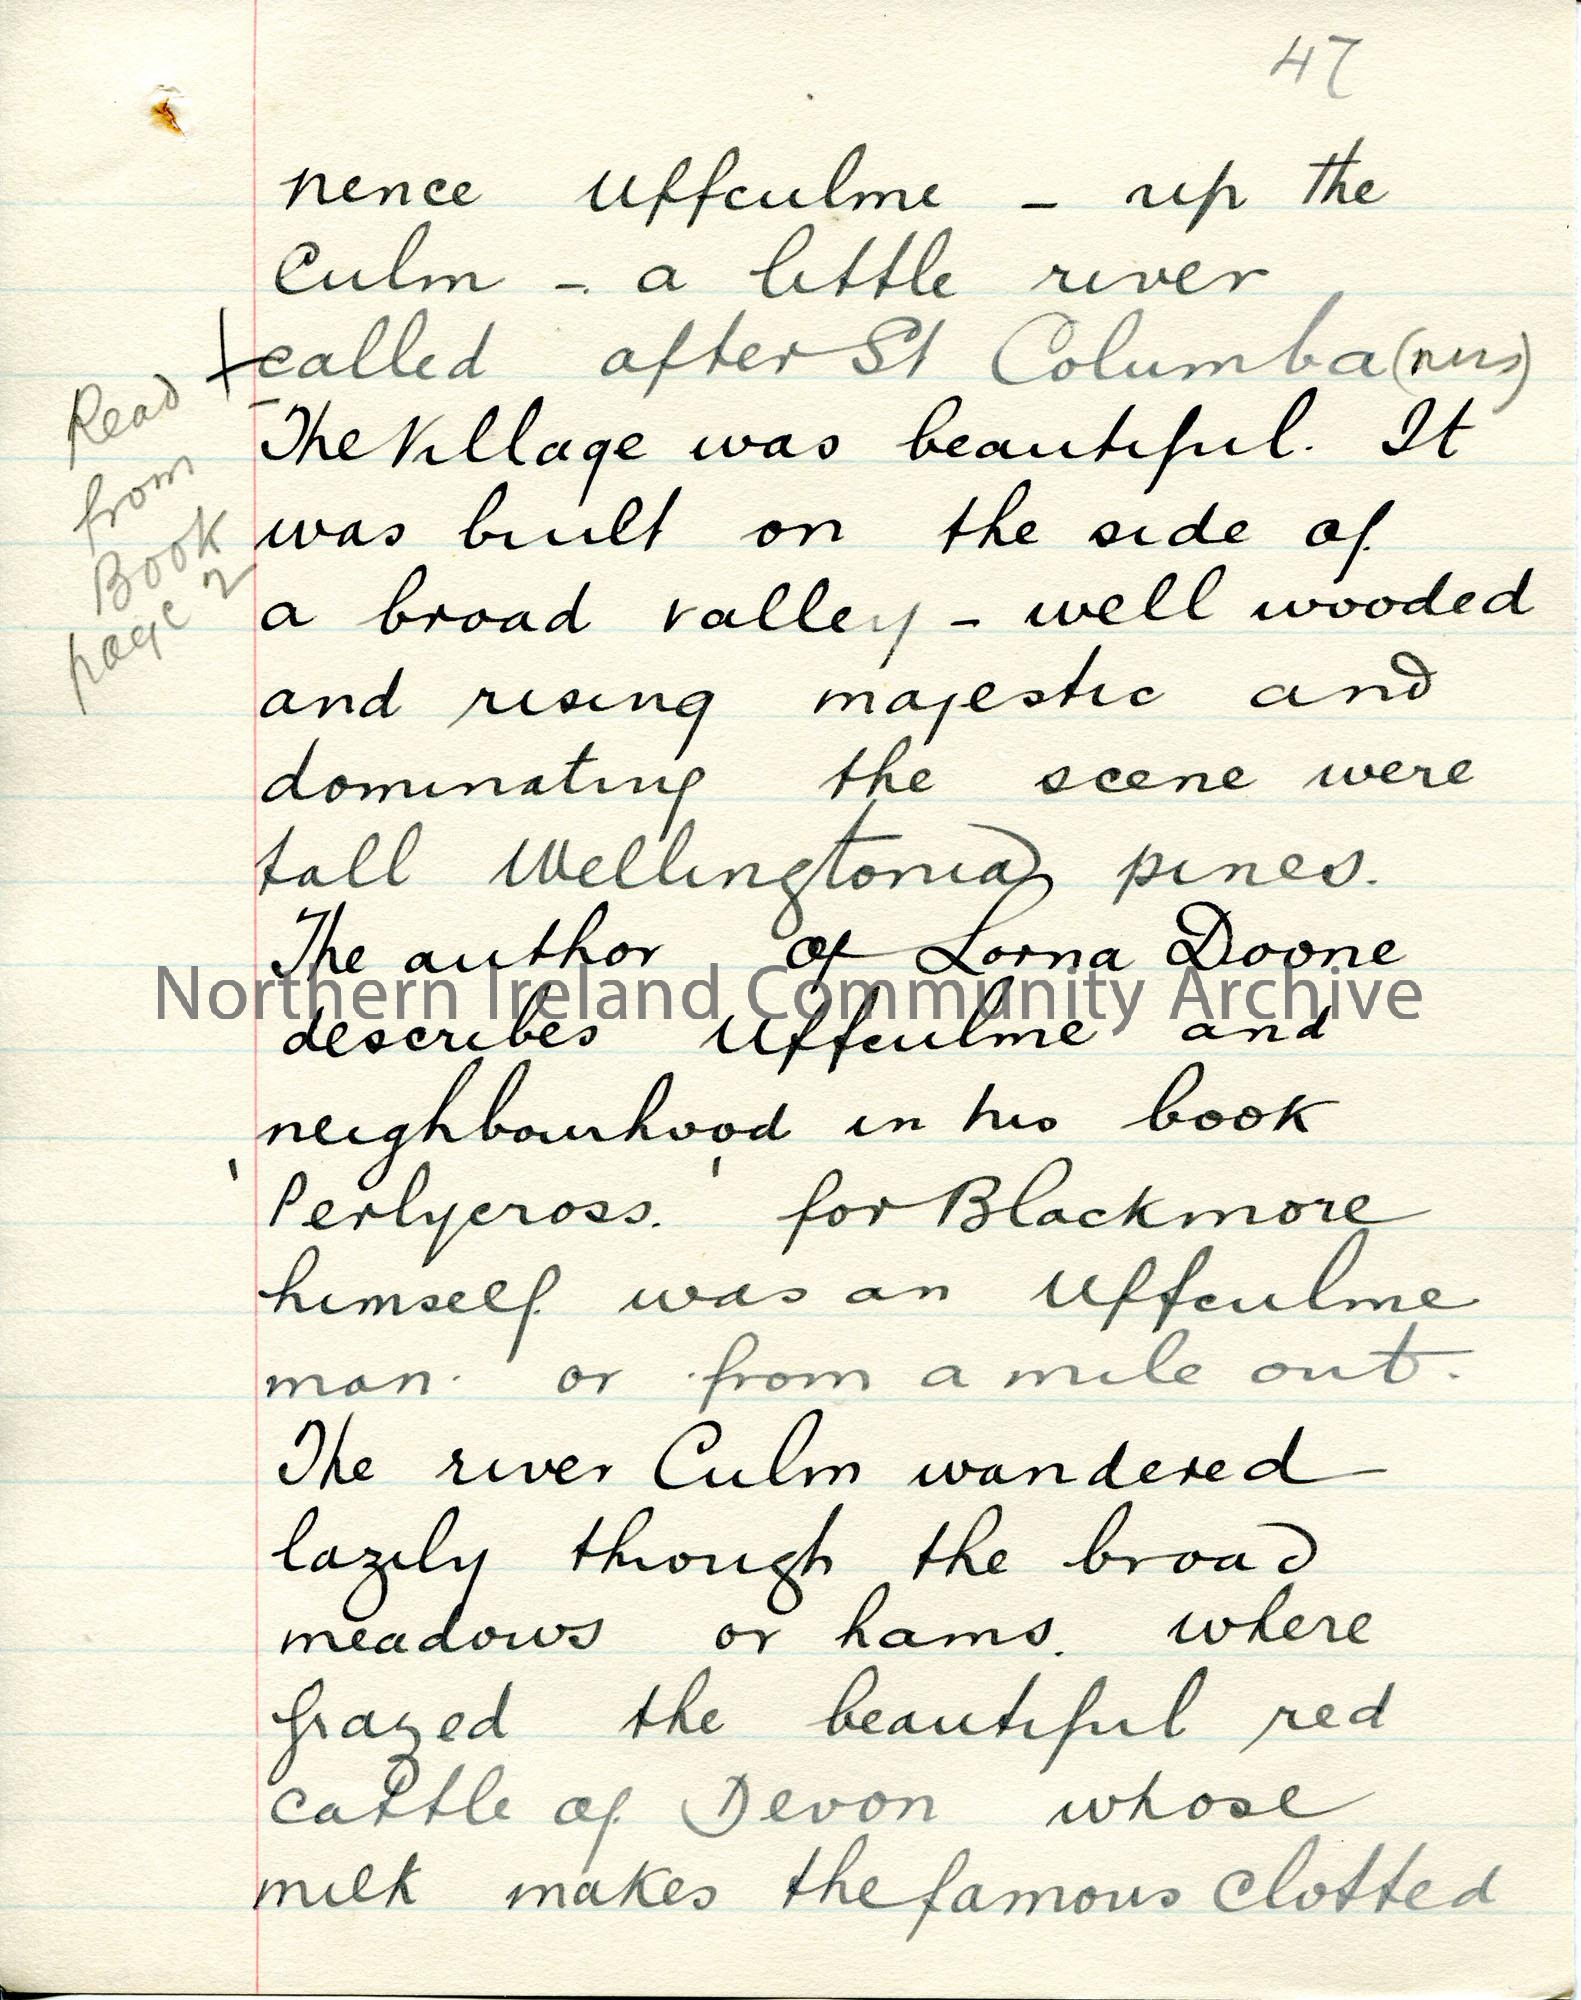 47
nence Uffculme - up the
Culm - a little river
called after St Columba (nus)
Read
from
Book
page 2
The Village was beautiful. It
was built on the side of
a broad valley - well wooded
and rising majestic and
dominating the scene were
tall Wellingtonia pines.
The author of Lorna Doone
Northern Ireland Community Archive
describes Uffculme and
neighbourhood in his book
'Perlycross.' for Blackmore
himself was an Uffculme
man. or from a mile out.
The river Culm wandered
lazily through the broad
meadows or hams. where
grazed the beautiful red
cattle of Devon whose
milk makes the famous clotted